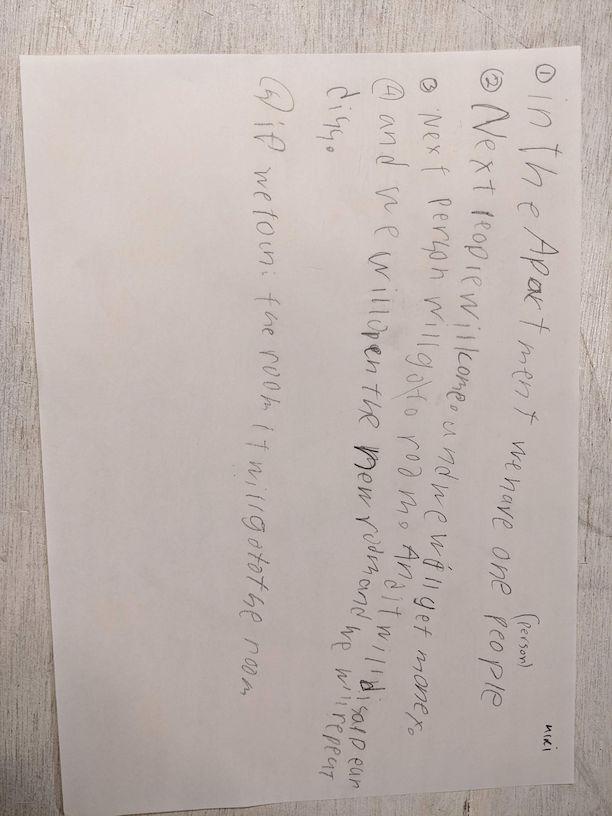 niki
① in the Apartment we have one people
(person)
② Next people will come. und we will get monex.
③ Next person will goto room. And it will disappear
④ and we will open the new room and we will repeat
this.
if we the room it will goto the room